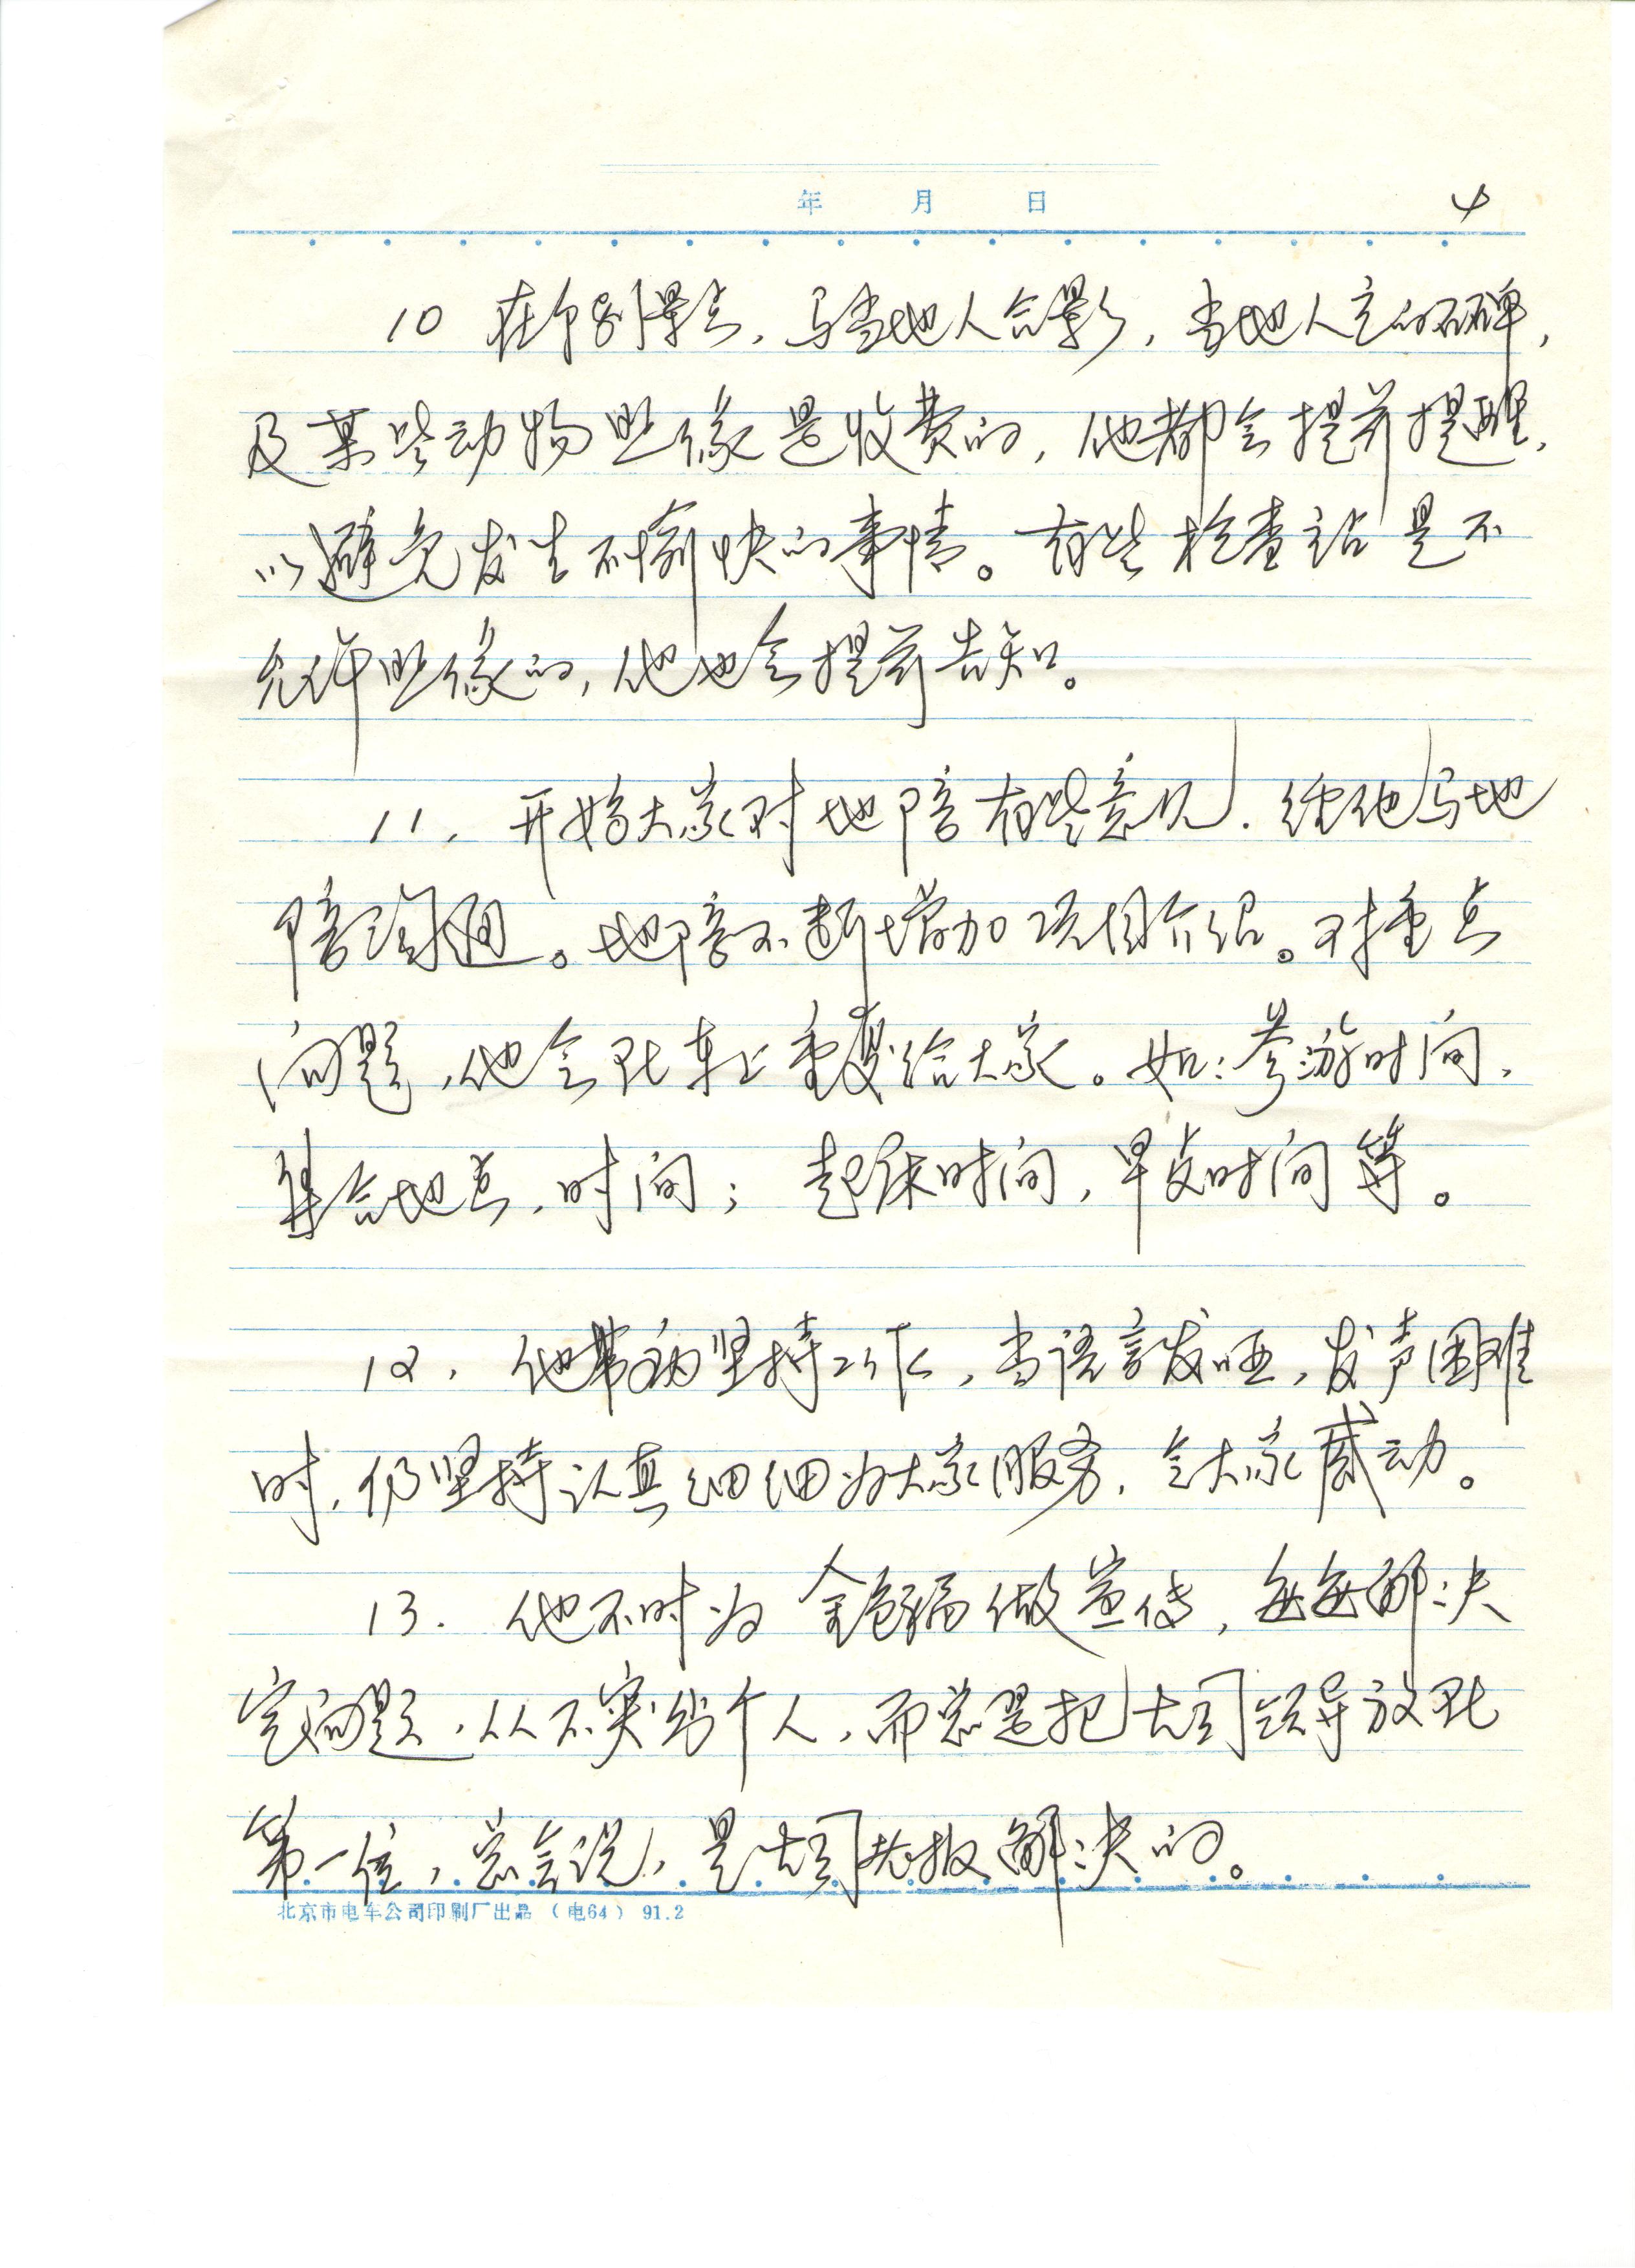 年 月 日
4
10 在个别景点，与当地人合影，当地人立的石碑，
及某些动物照像是收费的，他都会提前提醒，
以避免发生不愉快的事情。有些检查站是不
允许照像的，他也会提前告知。
11. 开始大家对地陪有些意见．经他与地
陪沟通。地陪不断增加项目介绍。对重点
问题，他会在车上重复给大家。如：参游时间，
集合地点，时间；起床时间，早点时间等。
12. 他带病坚持工作，当语言发哑，发声困难
时，仍坚持认真细细为大家服务，令大家感动。
13. 他不时为 做宣传，每每解决
完问题，从不突出个人，而总是把公司领导放在
第一位，总会说，是公司 解决的。
北京市电车公司印刷厂出品（电64） 91.2